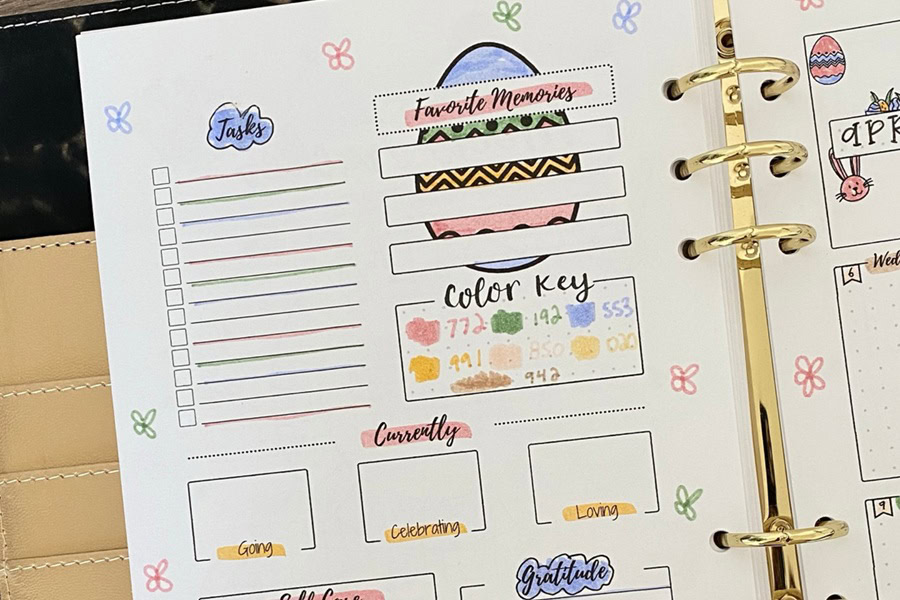 Tasks
Favorite Memories
Color Key
772 192 553
991 850 020
942
Currently
Going
Celebrating
Loving
Gratitude
Self Care
6
9